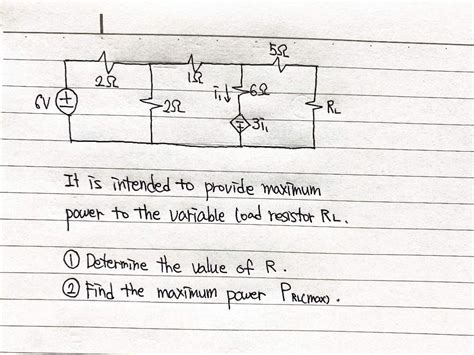 5Ω
2Ω
1Ω
6V
2Ω
i₁↓
6Ω
3i₁
RL
It is intended to provide maximum
power to the variable load resistor RL.
① Determine the value of R.
② Find the maximum power PRL(max).